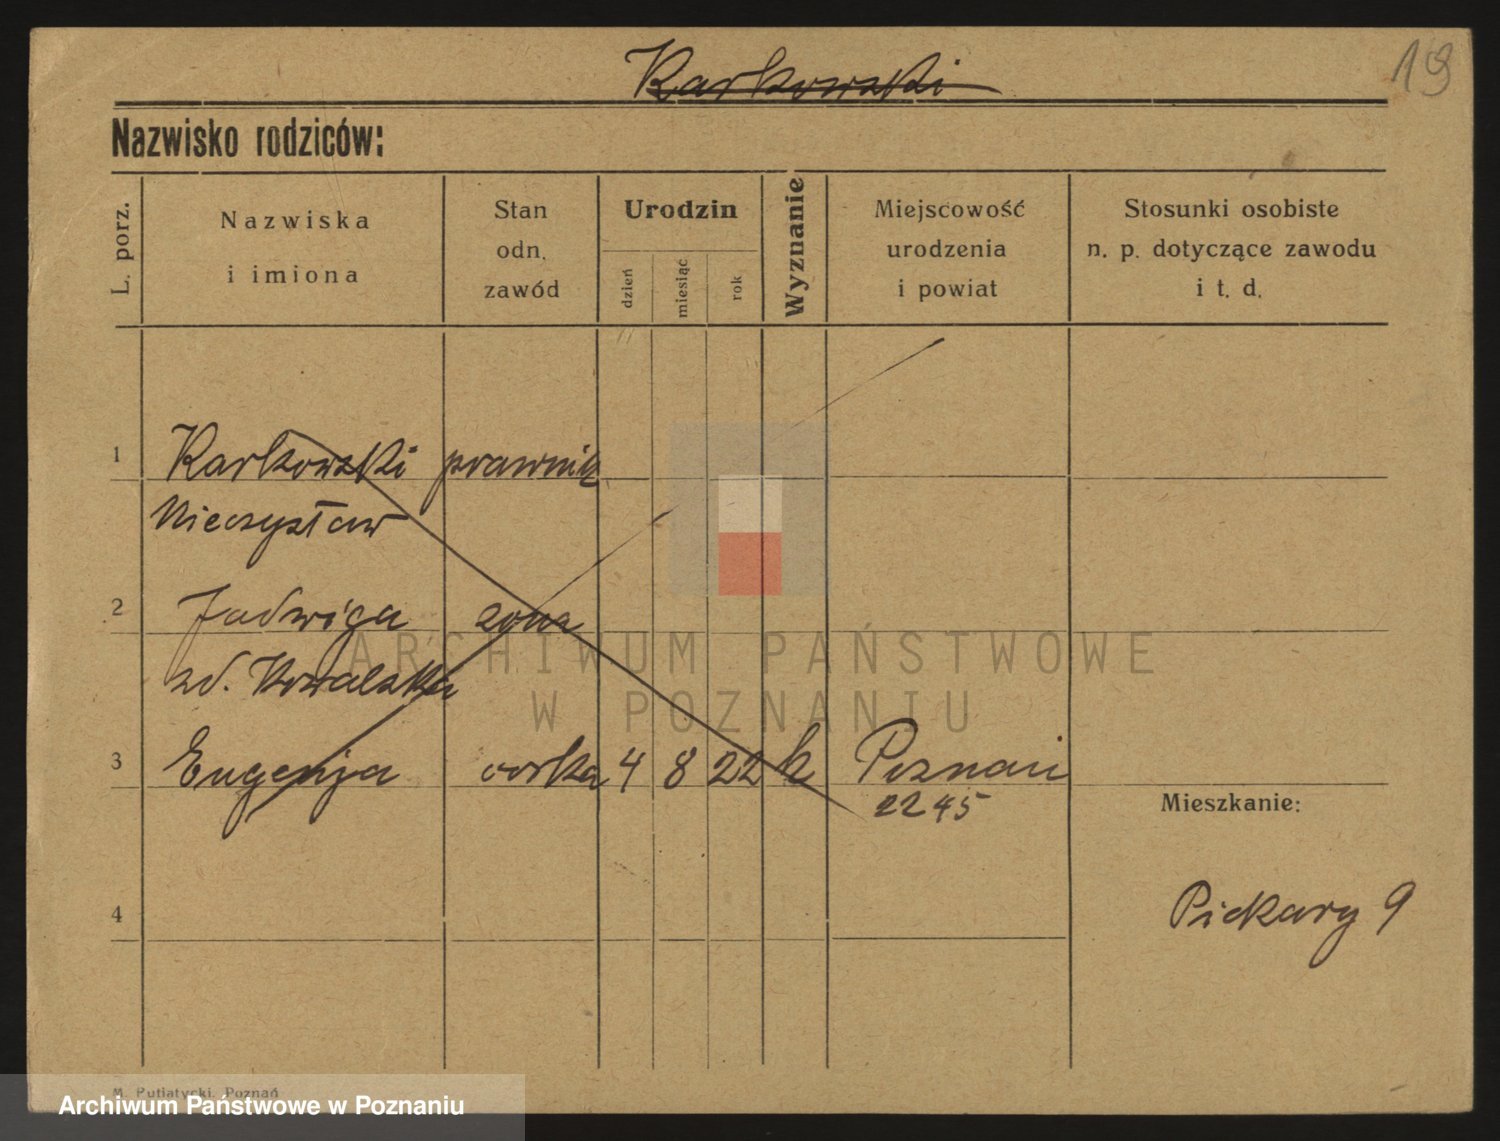 Karkowski
19
Nazwisko rodziców:
L. porz.
Nazwiska
i imiona
Stan
odn.
zawód
Urodzin
dzień
miesiąc
rok
Wyznanie
Miejscowość
urodzenia
i powiat
Stosunki osobiste
n. p. dotyczące zawodu
i t. d.
1 Karkowski prawnik
Mieczysław
2 Jadwiga żona
zd. Kowalska
3 Eugenja córka 4 8 22 k Poznań
2245
Mieszkanie:
4
Piekary 9
ARCHIWUM PAŃSTWOWE
W POZNANIU
M. Putiatycki, Poznań
Archiwum Państwowe w Poznaniu